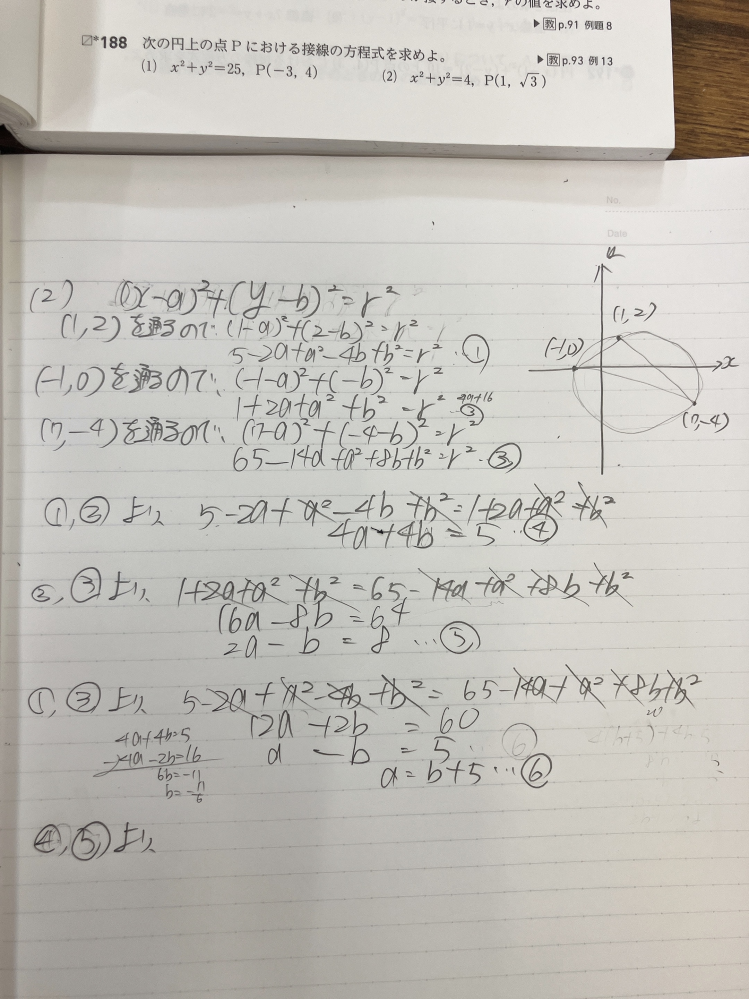 るとき，rの値を求めよ。
▶教p.91 例題8
*188 次の円上の点Pにおける接線の方程式を求めよ。
▶教p.93 例13
(1) x²+y²=25, P(−3, 4) (2) x²+y²=4, P(1, √3)
No.
Date
(2) (x-a)²+(y-b)²=r²
(1,2)を通るので、(1-a)²+(2-b)²=r²
5-2a+a²-4b+b²=r² …①
(-1,0)を通るので、(-1-a)²+(-b)²=r²
1+2a+a²+b²=r²
(7,-4)を通るので、(7-a)²+(-4-b)²=r²
65-14a+a²+8b+b²=r² …③
x
(1,2)
(-1,0)
(7,-4)
①,②より、 5-2a+a²-4b+b²=1+2a+a²+b²
4a+4b=5 …④
②,③より、 1+2a+a²+b²=65-14a+a²+8b+b²
16a-8b=64
2a-b=8 …⑤
①,③より、 5-2a+a²-4b+b²=65-14a+a²+8b+b²
12a+2b=60
a-b=5 …⑥
a=b+5 …⑥
4a+4b=5
-4a-2b=16
6b=-11
b=-11/6
④,⑤より、